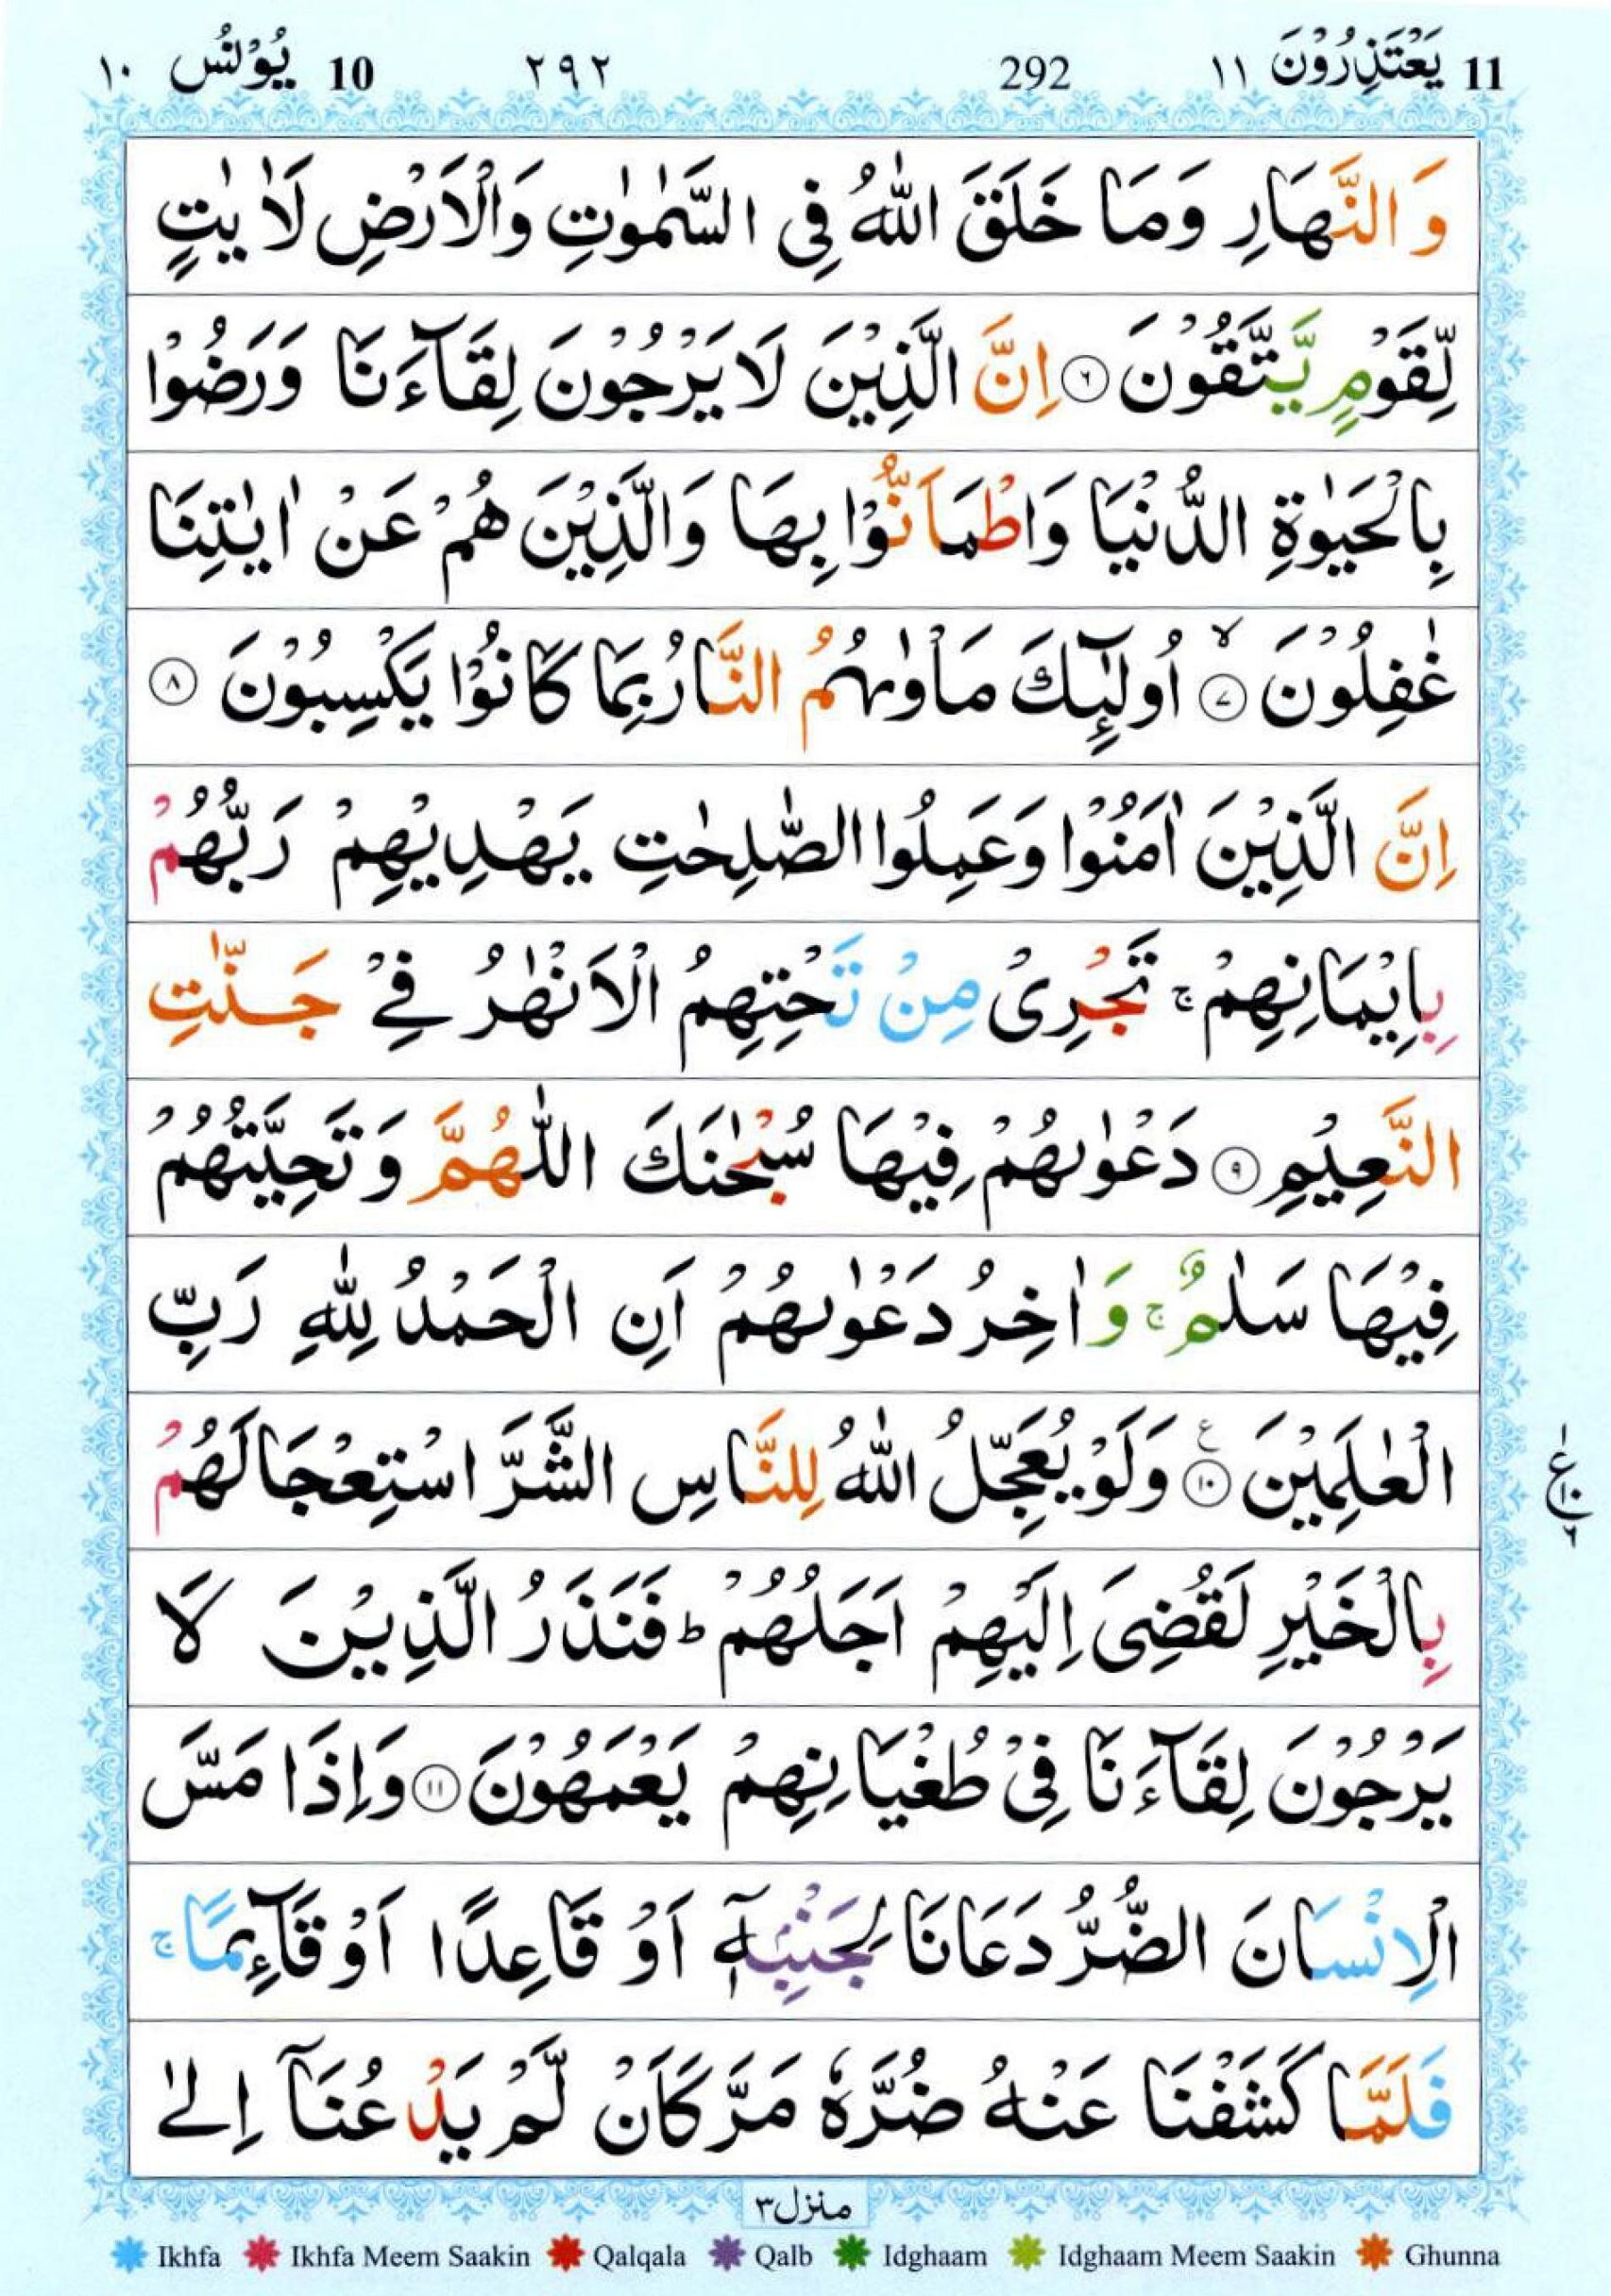 11 يَعْتَذِرُوْنَ ١١ 292 ٢٩٢ 10 يُوْنُس ١٠
وَ النَّهَارِ وَمَا خَلَقَ اللّٰهُ فِى السَّمٰوٰتِ وَالْاَرْضِ لَاٰ يٰتٍ
لِّقَوْمٍ يَّتَّقُوْنَ ۝٦ اِنَّ الَّذِيْنَ لَا يَرْجُوْنَ لِقَآءَنَا وَرَضُوْا
بِالْحَيٰوةِ الدُّنْيَا وَاطْمَاَنُّوْا بِهَا وَالَّذِيْنَ هُمْ عَنْ اٰيٰتِنَا
غٰفِلُوْنَ ۝٧ۙ اُولٰٓئِكَ مَاْوٰىهُمُ النَّارُ بِمَا كَانُوْا يَكْسِبُوْنَ ۝٨
اِنَّ الَّذِيْنَ اٰمَنُوْا وَعَمِلُوا الصّٰلِحٰتِ يَهْدِيْهِمْ رَبُّهُمْ
بِاِيْمَانِهِمْ ۚ تَجْرِىْ مِنْ تَحْتِهِمُ الْاَنْهٰرُ فِىْ جَنّٰتِ
النَّعِيْمِ ۝٩ دَعْوٰىهُمْ فِيْهَا سُبْحٰنَكَ اللّٰهُمَّ وَ تَحِيَّتُهُمْ
فِيْهَا سَلٰمٌ ۚ وَ اٰخِرُ دَعْوٰىهُمْ اَنِ الْحَمْدُ لِلّٰهِ رَبِّ
الْعٰلَمِيْنَ ۝١٠ ع وَلَوْ يُعَجِّلُ اللّٰهُ لِلنَّاسِ الشَّرَّ اسْتِعْجَالَهُمْ
بِالْخَيْرِ لَقُضِىَ اِلَيْهِمْ اَجَلُهُمْ ؕ فَنَذَرُ الَّذِيْنَ لَا
يَرْجُوْنَ لِقَآءَنَا فِىْ طُغْيَانِهِمْ يَعْمَهُوْنَ ۝١١ وَاِذَا مَسَّ
الْاِنْسَانَ الضُّرُّ دَعَانَا لِجَنْۢبِهٖٓ اَوْ قَاعِدًا اَوْ قَآئِمًا ۚ
فَلَمَّا كَشَفْنَا عَنْهُ ضُرَّهٗ مَرَّ كَاَنْ لَّمْ يَدْعُنَاۤ اِلٰى
منزل ٣
Ikhfa Ikhfa Meem Saakin Qalqala Qalb Idghaam Idghaam Meem Saakin Ghunna